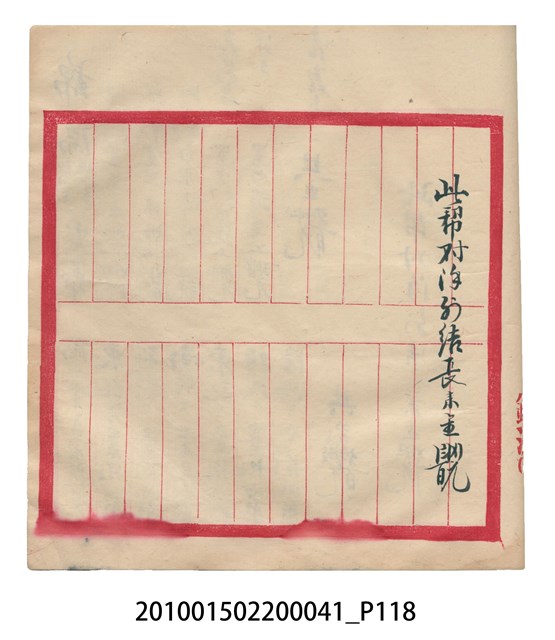 此帮对除列结長来宝號
201001502200041_P118